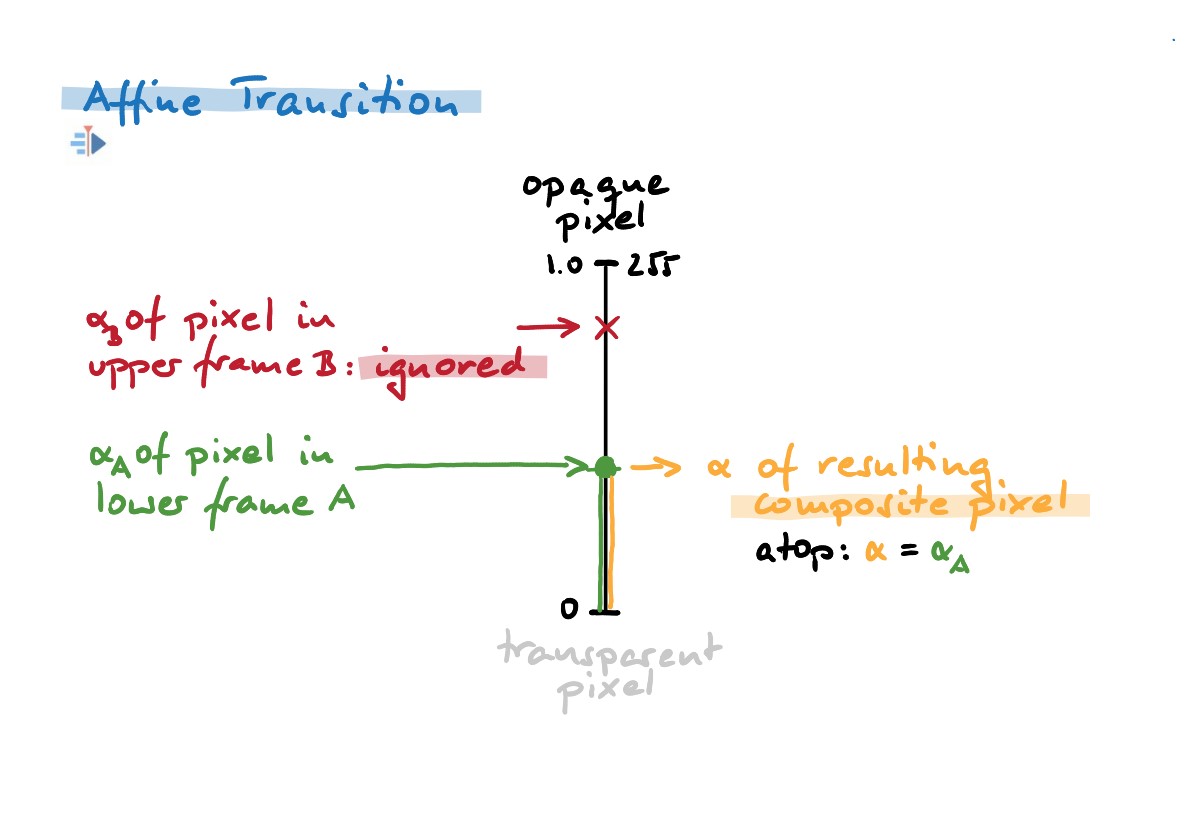 Affine Transition
opaque
pixel
1.0 255
αB of pixel in
upper frame B: ignored
αA of pixel in
lower frame A
α of resulting
composite pixel
atop: α = αA
0
transparent
pixel